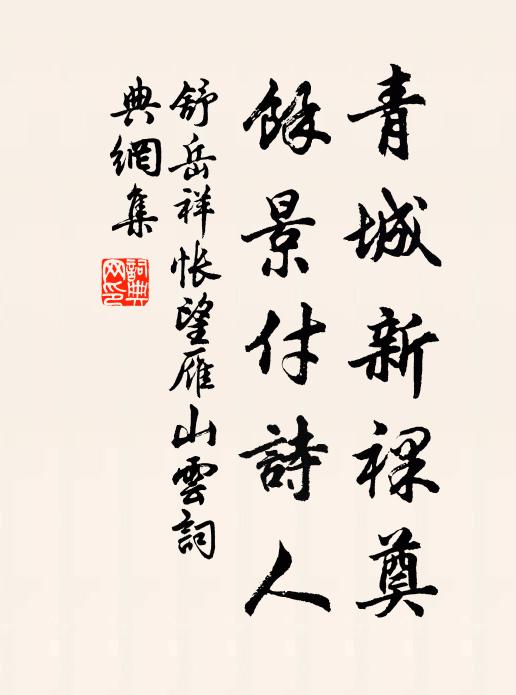 青城新裸奠
餘景付詩人
舒岳祥悵望雁山雲詞
典網集
詞典網印